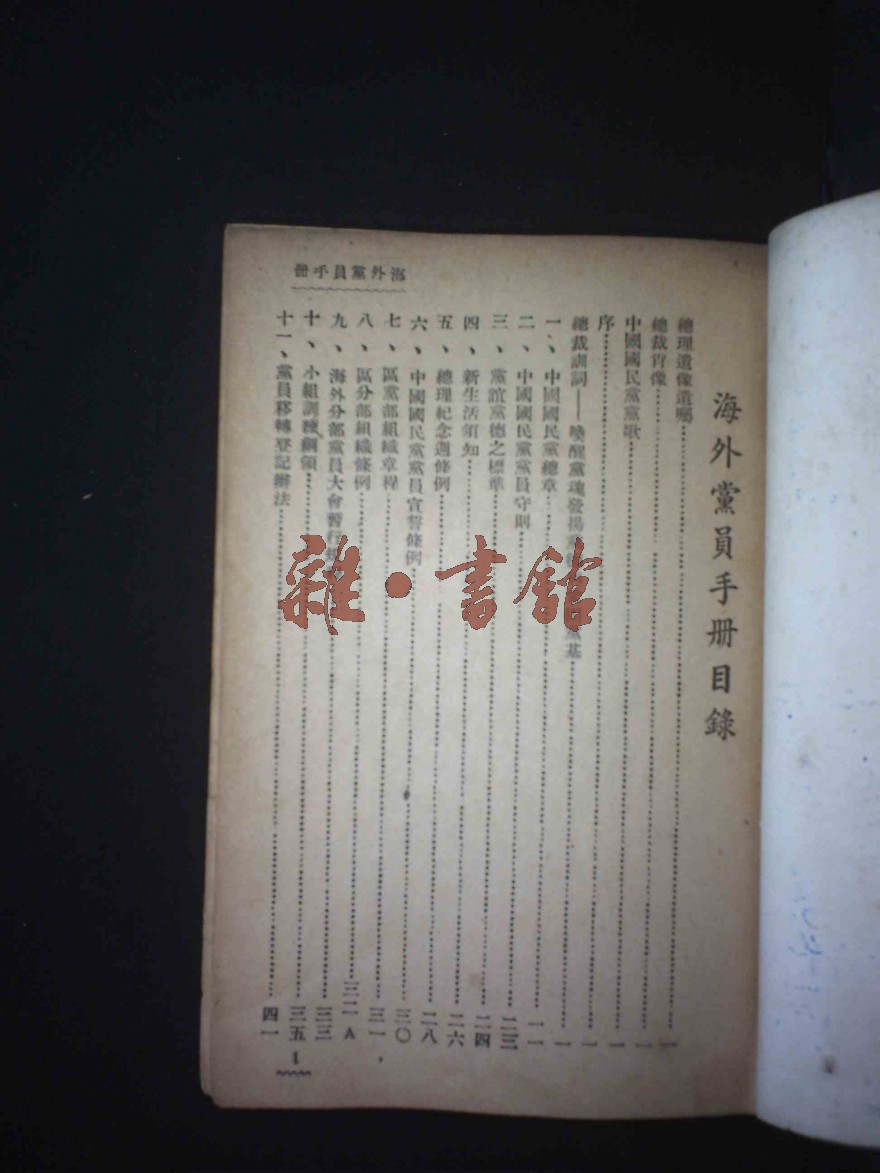 海外黨員手冊
海外黨員手冊目錄
總理遺像遺囑……一
總裁肖像……一
中國國民黨黨歌……一
序……一
總裁訓詞——喚醒黨魂發揚黨 黨基……一
一、中國國民黨總章……一一
二、中國國民黨黨員守則……二三
三、黨誼黨德之標準……二四
四、新生活須知……二六
五、總理紀念週條例……二八
六、中國國民黨黨員宣誓條例……三〇
七、區黨部組織章程……三一
八、區分部組織條例……三二A
九、海外分部黨員大會暫行……三三
十、小組訓練綱領……三五
十一、黨員移轉登記辦法……四一
1
雜·書館